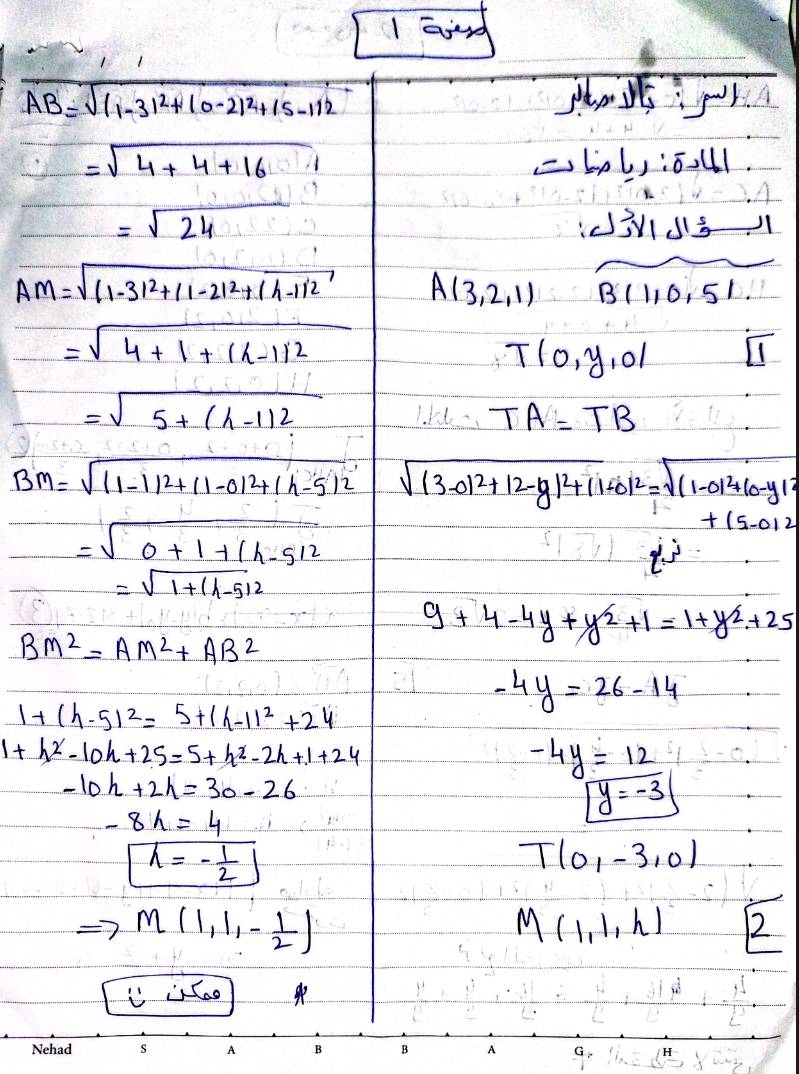 صفحة 1
السر: بالانصابر
المادة: رياضيات
السؤال الأول:
A(3,2,1) B(1,0,5)
1
T(0,y,0)
TA = TB
√(3-0)²+(2-y)²+(1-0)² = √(1-0)²+(0-y)²
+(5-0)²
نربع
9+4-4y+y²+1=1+y²+25
-4y = 26-14
-4y = 12
y = -3
T(0,-3,0)
2
M(1,1,h)
AB=√(1-3)²+(0-2)²+(5-1)²
=√4+4+16
=√24
AM=√(1-3)²+(1-2)²+(h-1)²
=√4+1+(h-1)²
=√5+(h-1)²
BM=√(1-1)²+(1-0)²+(h-5)²
=√0+1+(h-5)²
=√1+(h-5)²
BM²=AM²+AB²
1+(h-5)²=5+(h-1)²+24
1+h²-10h+25=5+h²-2h+1+24
-10h+2h=30-26
-8h=4
h=-1/2
=> M(1,1,-1/2)
ممكن
Nehad S A B B A G H